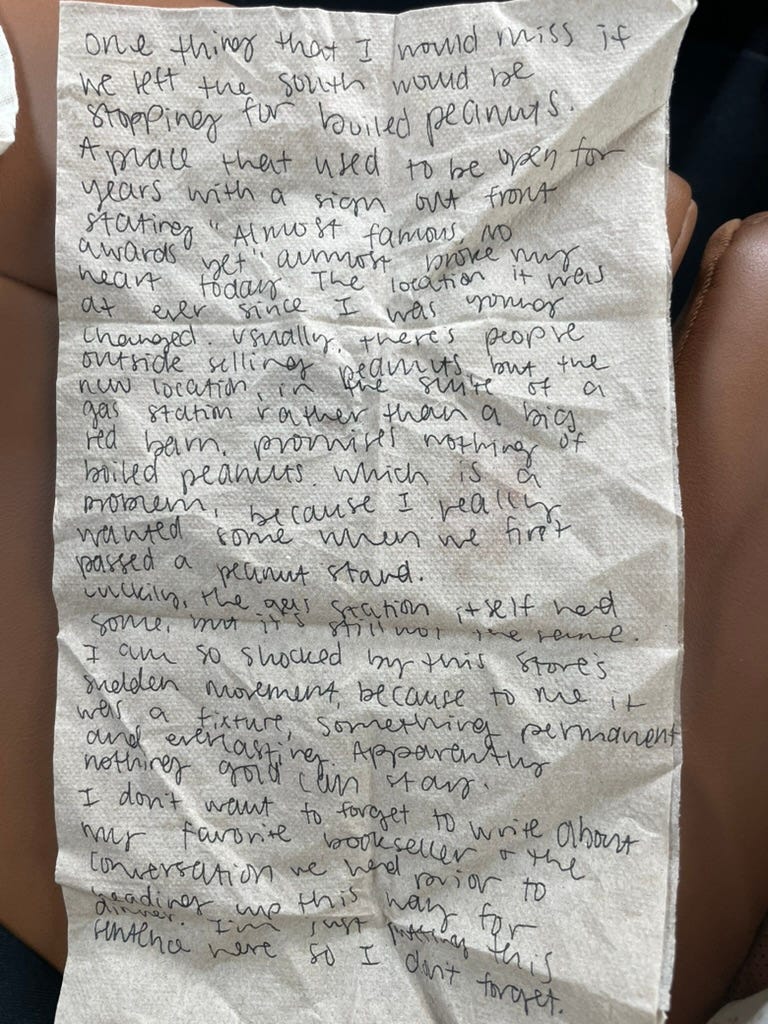 one thing that I would miss if
we left the south would be
stopping for boiled peanuts.
A place that used to be open for
years with a sign out front
stating "Almost famous, no
awards yet" almost broke my
heart today. The location it was
at ever since I was young
changed. Usually, there's people
outside selling peanuts, but the
new location, in the suite of a
gas station rather than a big
red barn, promises nothing of
boiled peanuts. which is a
problem, because I really
wanted some when we first
passed a peanut stand.
Luckily, the gas station itself had
some, but it's still not the same.
I am so shocked by this store's
sudden movement, because to me it
was a fixture, something permanent
and everlasting. Apparently
nothing gold can stay.
I don't want to forget to write about
my favorite bookseller & the
conversation we had prior to
heading up this way for
dinner. I'm just putting this
sentence here so I don't forget.